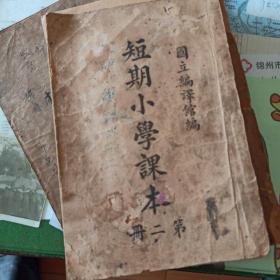 國立編譯館編
短期小學課本
第二冊
錦州市